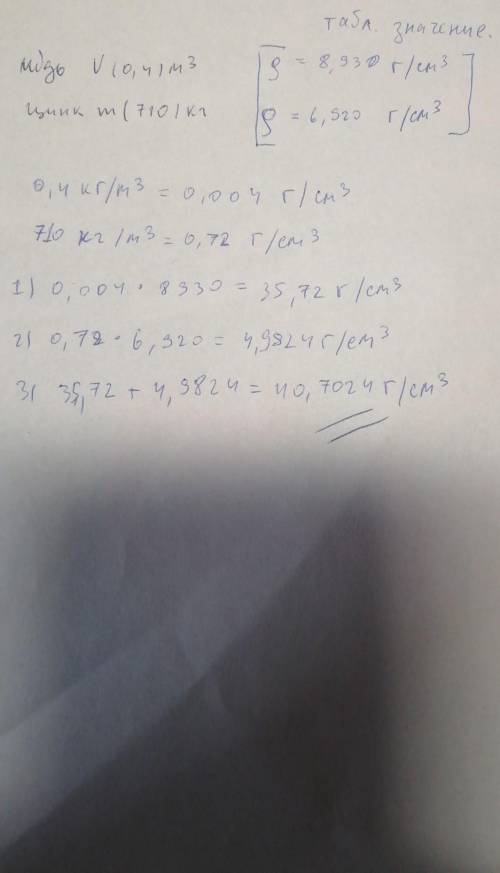 табл. значение.
медь V(0,4) м³ ρ = 8,930 г/см³
цинк m(710) кг ρ = 6,920 г/см³
0,4 кг/м³ = 0,004 г/см³
710 кг/м³ = 0,72 г/см³
1) 0,004 · 8930 = 35,72 г/см³
2) 0,72 · 6,920 = 4,9824 г/см³
3) 35,72 + 4,9824 = 40,7024 г/см³